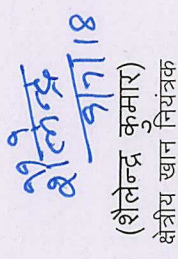 शैलेन्द्र
9/7/18
(शैलेन्द्र कुमार)
क्षेत्रीय खान नियंत्रक